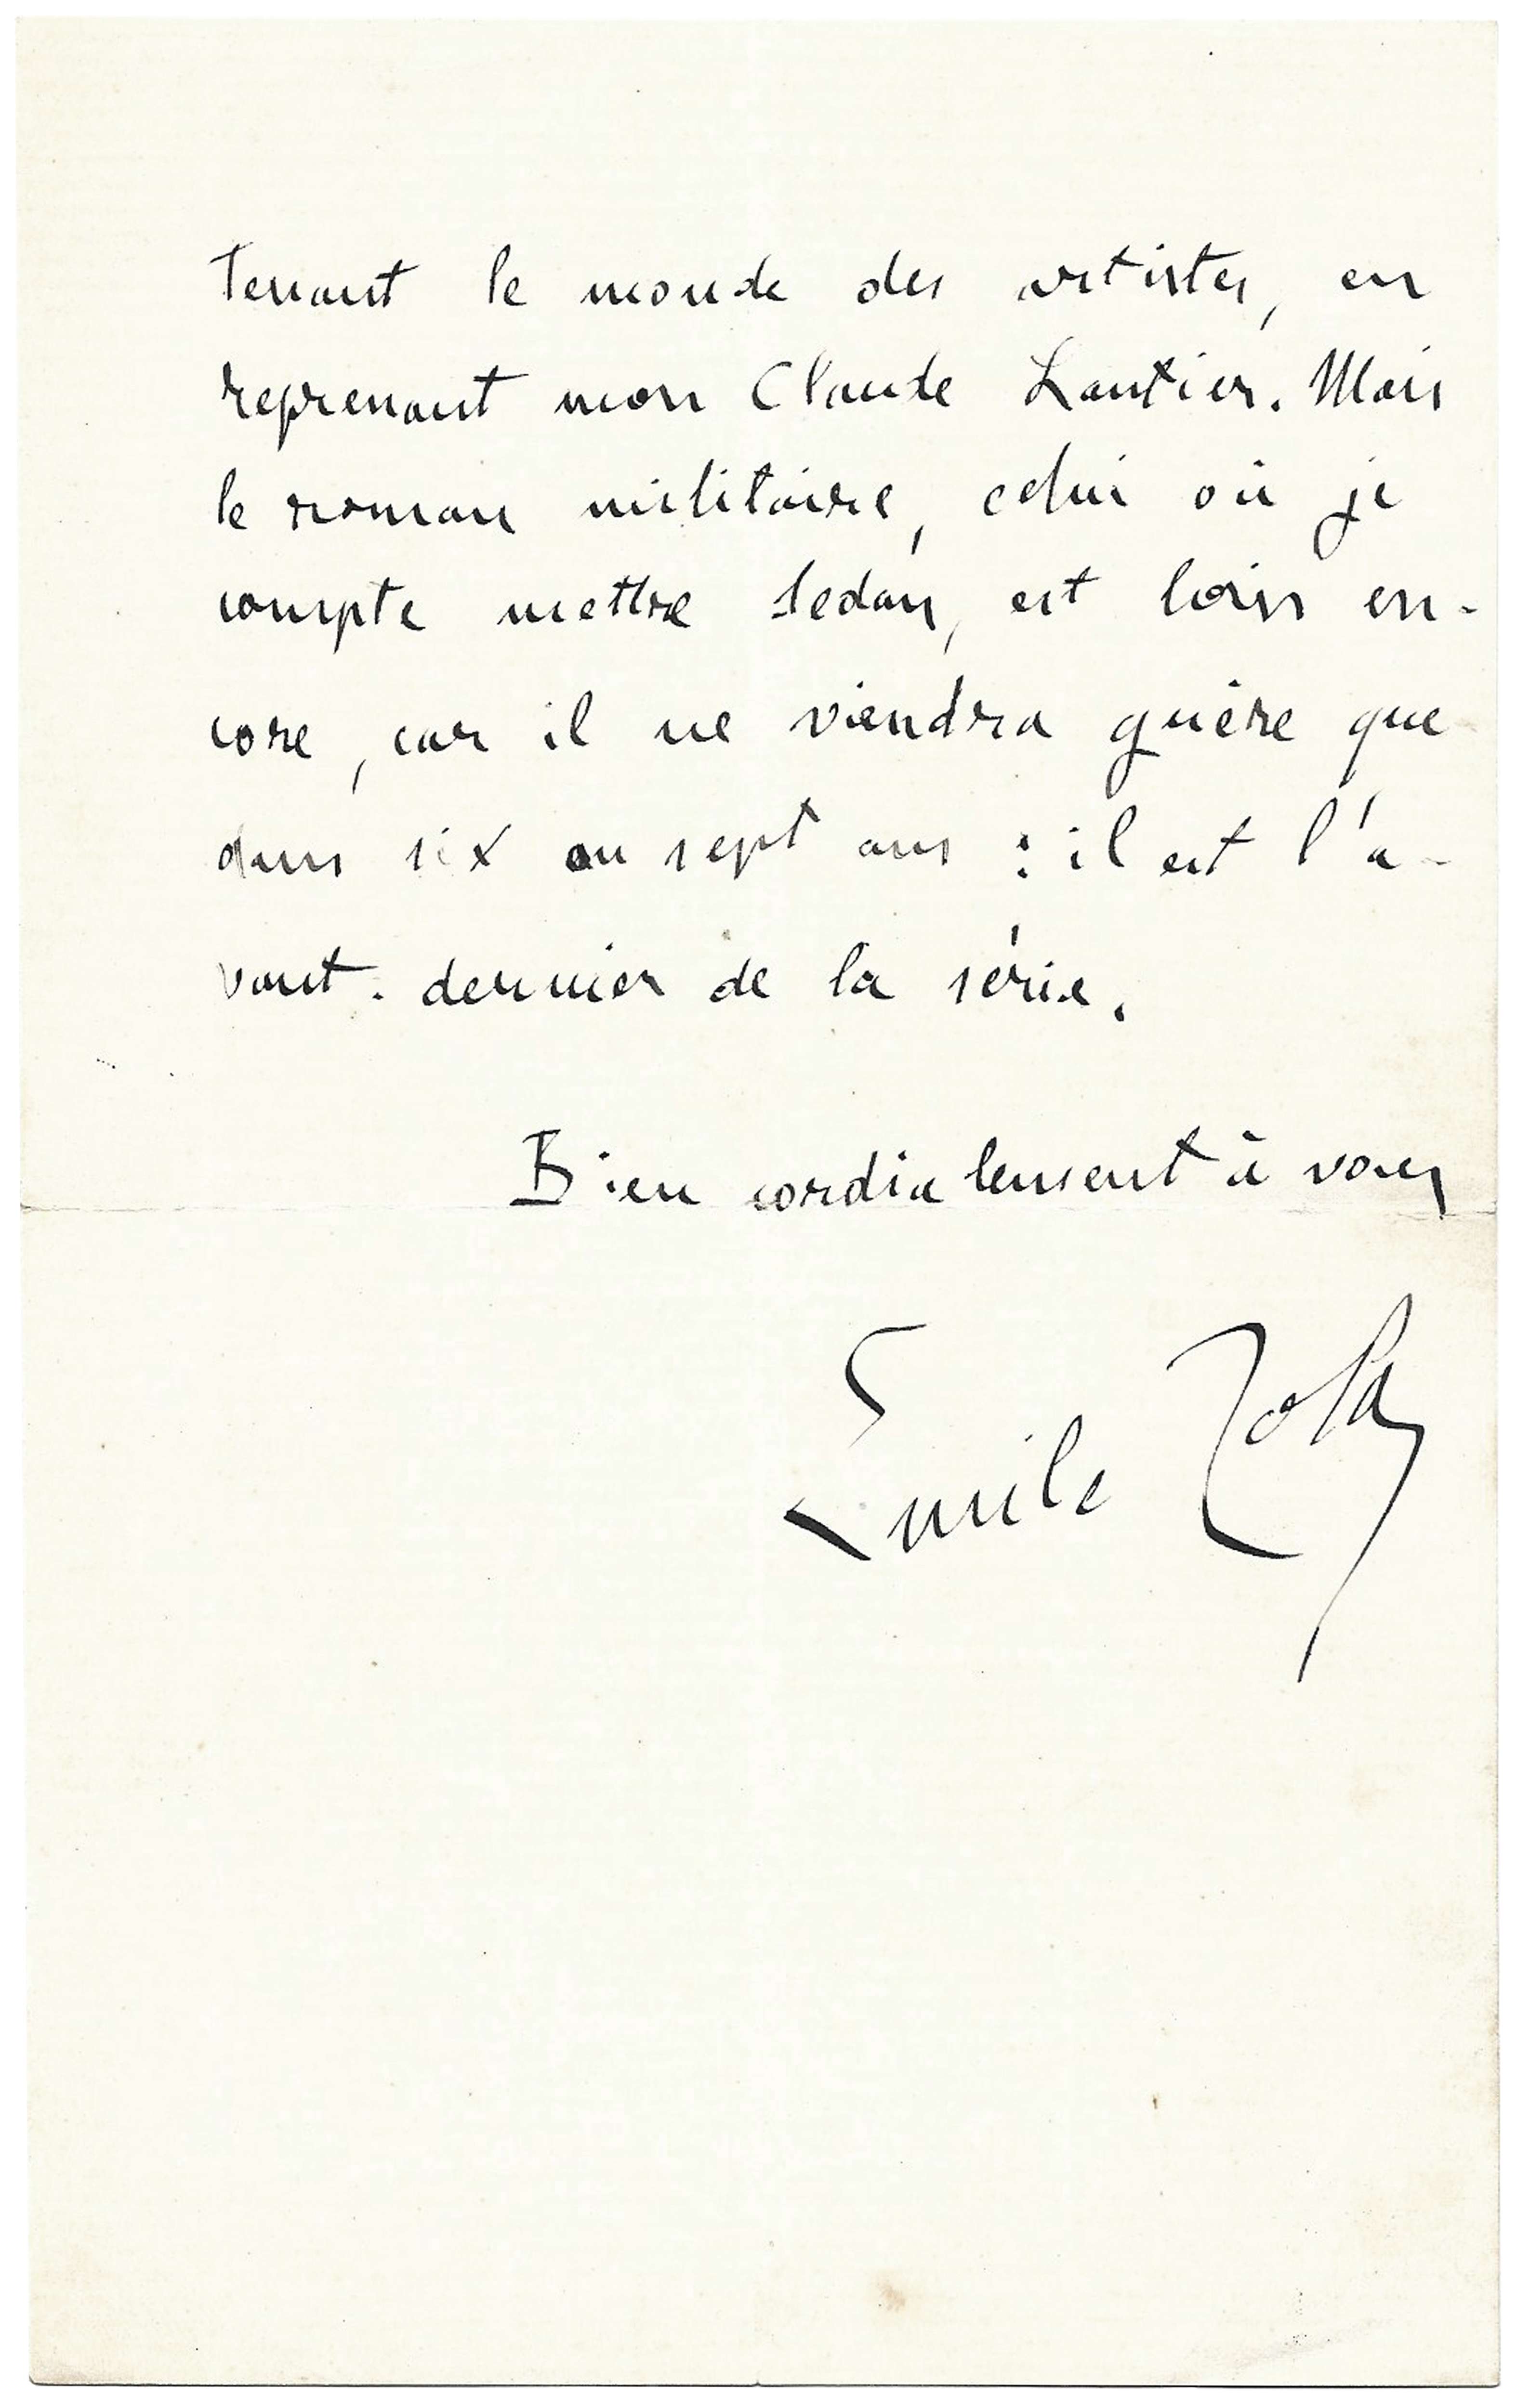 tenant le monde des artistes, en
reprenant mon Claude Lantier. Mais
le roman militaire, celui où je
compte mettre Sedan, est loin en-
core, car il ne viendra guère que
dans six ou sept ans : il est l'a-
vant-dernier de la série.
Bien cordialement à vous
Emile Zola